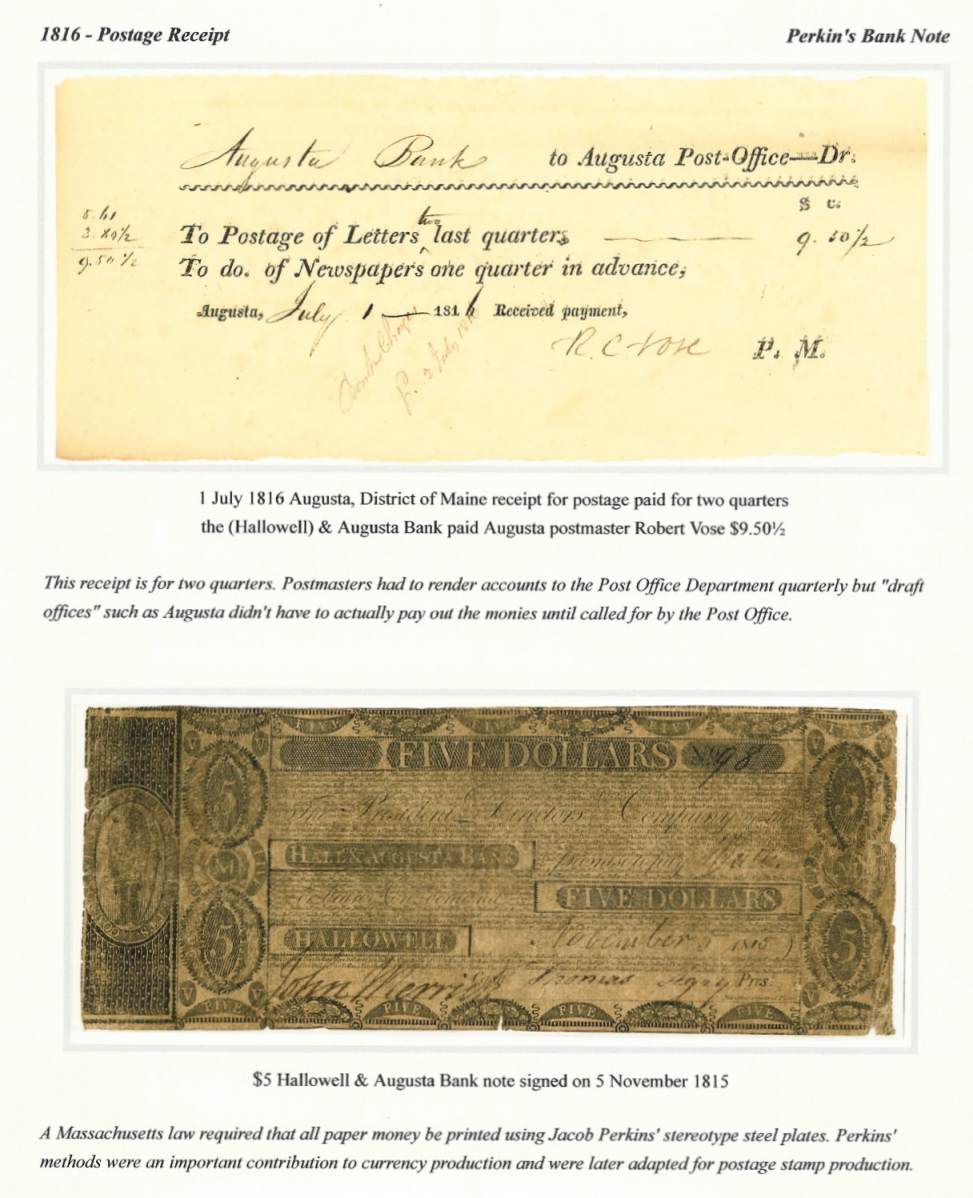 1816 - Postage Receipt Perkin's Bank Note
Augusta Bank to Augusta Post-Office—Dr.
$ c.
5.61
3.89½
9.50½
two
To Postage of Letters ‸ last quarters 9.50½
To do. of Newspapers one quarter in advance,
Augusta, July 1 — 1816 Received payment,
R C Vose P. M.
2 July 1816
1 July 1816 Augusta, District of Maine receipt for postage paid for two quarters
the (Hallowell) & Augusta Bank paid Augusta postmaster Robert Vose $9.50½
This receipt is for two quarters. Postmasters had to render accounts to the Post Office Department quarterly but "draft
offices" such as Augusta didn't have to actually pay out the monies until called for by the Post Office.
FIVE DOLLARS 98
5 5
The President Directors & Company
HALL. & AUGUSTA BANK promise to pay
M
or bearer on demand FIVE DOLLARS
HALLOWELL November 1815
5 5
John Merri Cash Thomas Agry Pres.
FIVE FIVE FIVE FIVE
$5 Hallowell & Augusta Bank note signed on 5 November 1815
A Massachusetts law required that all paper money be printed using Jacob Perkins' stereotype steel plates. Perkins'
methods were an important contribution to currency production and were later adapted for postage stamp production.